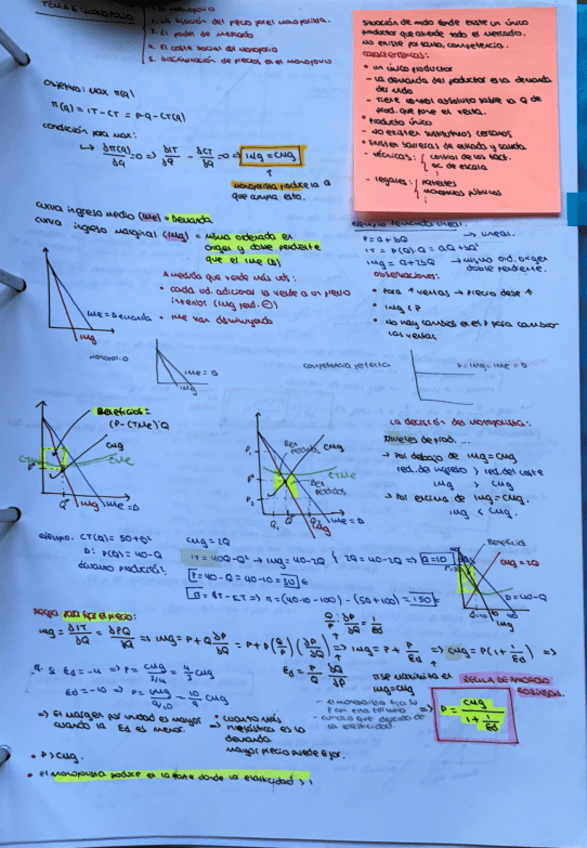 TEMA 6: MONOPOLIO
1. La fijación del precio por el monopolista.
3. El poder de mercado
4. El coste social del monopolio
5. Discriminación de precios en el monopolio
Situación de mdo donde existe un único
productor que atiende todo el mercado.
No existe por tanto, competencia.
características:
• un único productor
- La demanda del productor es la demanda
del mdo
- Tiene control absoluto sobre la Q de
prod. que pone el venta.
• Producto único
- No existen sustitutivos cercanos
• Existen barreras de entrada y salida
- Técnicas: control de los fact.
ec. de escala
- legales: Patentes
monopolios públicos
Objetivo: Max π(Q)
π(Q) = IT - CT = P·Q - CT(Q)
condición para Max:
↳ ∂π(Q)/∂Q = 0 => ∂IT/∂Q - ∂CT/∂Q = 0 => IMg = CMg
Monopolista produce la Q
que cumpla esto.
curva ingreso medio (IMe) = Demanda
curva ingreso marginal (IMg) = misma ordenada en
origen y doble pendiente
que el IMe (D)
ejemplo demanda lineal:
P = a + bQ → lineal.
IT = P(Q)·Q = aQ + bQ²
IMg = a + 2bQ → misma ord. origen
doble pendiente.
A medida que vende más uds:
• cada ud. adicional la vende a un precio
inferior (IMg pend. ⊖)
• IMe van disminuyendo
observaciones:
• Para ↑ ventas → precio debe ↓
• IMg < P
• No hay cambios en el P para cambiar
las ventas
IMe = Demanda
IMg
Monopolio
IMe = D
IMg
competencia perfecta
P = IMg = IMe = D
Beneficios =
(P - CTMe)·Q
CMg
CMe
Q*
IMg
IMe = D
CMg
CTMe
IMe = D
IMg
La decisión del monopolista:
niveles de prod. ...
→ Por debajo de IMg = CMg
red. del ingreso > red. del coste
IMg > CMg
→ Por encima de IMg = CMg.
IMg < CMg.
ejemplo. CT(Q) = 50 + Q²
D: P(Q) = 40 - Q
cuánto producirá?
CMg = 2Q
IT = 40Q - Q² → IMg = 40 - 2Q } 2Q = 40 - 2Q => Q = 10
P = 40 - Q = 40 - 10 = 30 €
π = IT - CT => π = (40·10 - 100) - (50 + 100) = 150 €
Beneficio
CMg = 2Q
D = 40 - Q
IMg
Regla para fijar el precio:
IMg = ∂IT/∂Q = ∂PQ/∂Q => IMg = P + Q ∂P/∂Q = P + P(Q/P)(∂P/∂Q) => IMg = P + P/Ed => CMg = P(1 + 1/Ed) =>
Q/P · ∂P/∂Q = 1/Ed
Ed = P/Q · ∂Q/∂P
π se maximiza en
IMg = CMg
REGLA DE AMOROSO
ROBINSON.
P = CMg / 1 + 1/Ed
Ed = -4 => P = CMg / 3/4 = 4/3 CMg
Ed = -10 => P = CMg / 9/10 = 10/9 CMg
=> El margen por unidad es mayor
cuando la Ed es menor.
• cuanto más
inelástica es la
demanda
mayor precio puede fijar.
- el monopolista fija su
P por una fórmula
- curiosa que depende de
la elasticidad
• P > CMg.
• El monopolista produce en la parte donde la elasticidad > 1